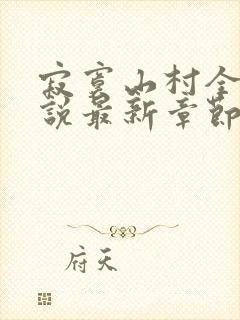 寂寞山村全
說最新章節
府天